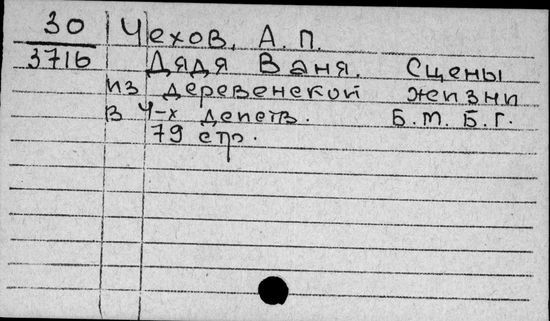 30 Чехов, А. П.
3716 Дядя Ваня. Сцены
из деревенской жизни
в 4-х действ. Б.М. Б.Г.
79 стр.